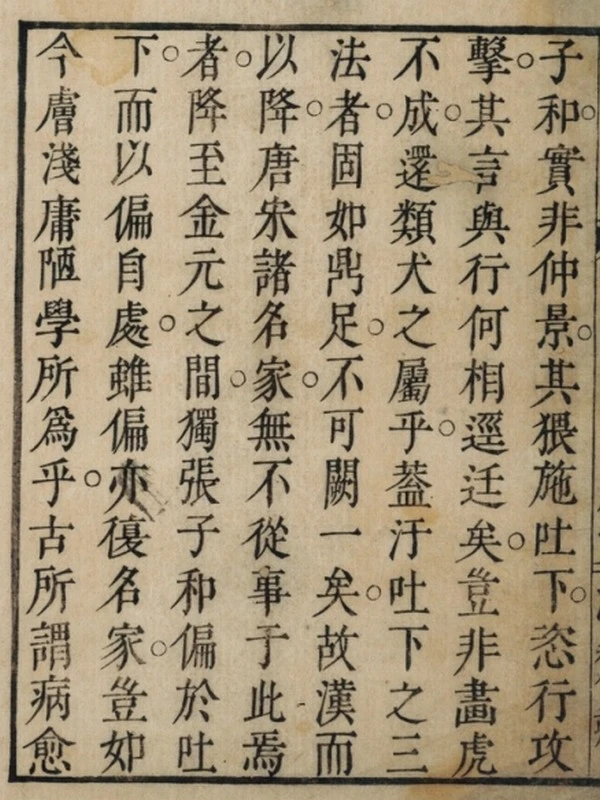 子和○實非仲景○其猥施吐下○恣行攻
擊○其言與行何相逕迋矣○豈非畫虎
不成○還類犬之屬乎○蓋汗吐下之三
法者○固如鼎足○不可闕一矣○故漢而
以降○唐宋諸名家○無不從事于此焉
者○降至金元之間○獨張子和偏於吐
下○而以偏自處○雖偏亦復名家○豈如
今膚淺庸陋學所爲乎○古所謂病愈